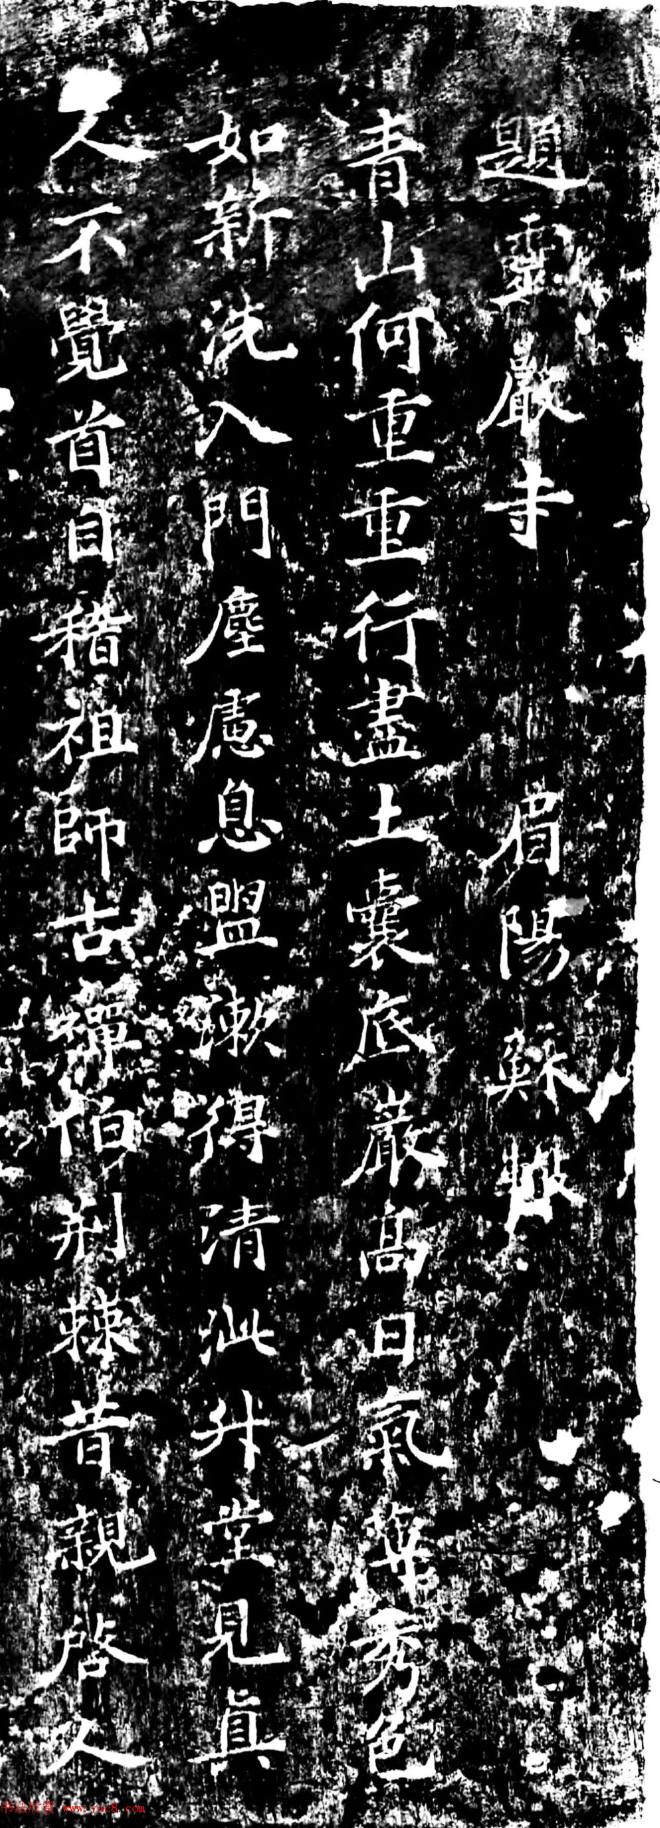 題靈巖寺 眉陽蘇轍
青山何重重行盡土囊底巖高日氣薄秀色
如新洗入門塵慮息盥漱得清泚升堂見真
人不覺首自稽祖師古禪伯荊棘昔親啓人